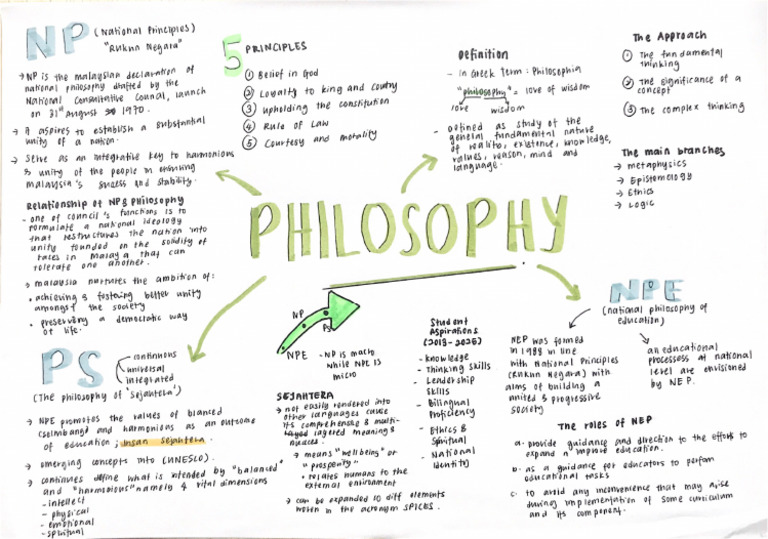 NP (National Principles)
"Rukun Negara"
→ NP is the malaysian declaration of
national philosophy drafted by the
National Consultative Council, launch
on 31st august 1970.
→ It aspires to establish a substantial
unity of a nation.
→ Serve as an integrative key to harmonious
& unity of the people in
malaysia's success and stability.
Relationship of NP & Philosophy
- one of council's functions is to
formulate a national ideology
that restructures the nation into
unity founded on the solidity of
races in Malaya that can
tolerate one another.
→ malaysia nurtures the ambition of:
• achieving & fostering better unity
amongst the society
• preserving a democratic way
of life.
5 PRINCIPLES
① Belief in God
② Loyalty to king and country
③ upholding the constitution
④ Rule of Law
⑤ Courtesy and morality
Definition
- In Greek Term : Philosophia
"philosophy" = love of wisdom
love wisdom
- Defined as study of the
general, fundamental nature
of reality, existence, knowledge,
values, reason, mind and
language.
The Approach
① The fundamental
thinking
② The significance of a
concept
③ The complex thinking
The main branches
→ metaphysics
→ Epistemology
→ Ethics
→ Logic
PHILOSOPHY
PS
continuous
universal
integrated
(The philosophy of 'Sejahtera')
→ NPE promotes the values of
(seimbang) and harmonious as an outcome
of education ; insan sejahtera.
→ emerging concepts into (UNESCO).
→ continues define what is intended by "balanced"
and "harmonious" namely 4 vital dimensions
- intellect
- physical
- emotional
- spiritual
NP
PS
NPE
- NP is macro
while NPE is
micro
SEJAHTERA
→ not easily rendered into
other languages cause
its comprehensive & multi-
layered meaning &
nuances.
→ means "well being" or
"prosperity"
• relates humans to the
external environment
→ can be expanded 10 diff elements
woven in the acronym SPICES.
Student
Aspirations
(2013-2025)
- knowledge
- Thinking Skills
- Leadership
Skills
- Bilingual
Proficiency
- Ethics &
Spiritual
- National
Identity
NPE
(national philosophy of
education)
NEP was formed
in 1988 in line
with National Principles
(Rukun Negara) with
aims of building a
united & progressive
society
an educational
processess at national
level are envisioned
by NEP.
The roles of NEP
a. provide guidance and direction to the efforts to
expand n improve education.
b. as a guidance for educators to perform
educational tasks
c. to avoid any inconvenience that may arise
during implementation of some curriculum
and its component.